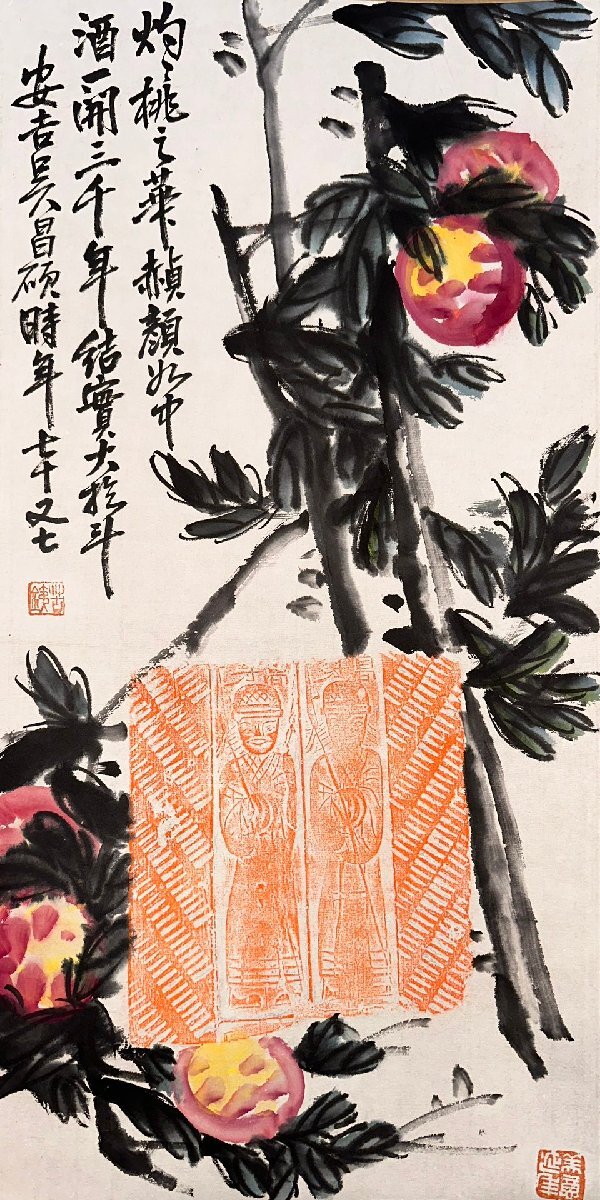 灼灼桃之華赬顏如中
酒一開三千年結實大於斗
安吉吳昌碩時年七十又七